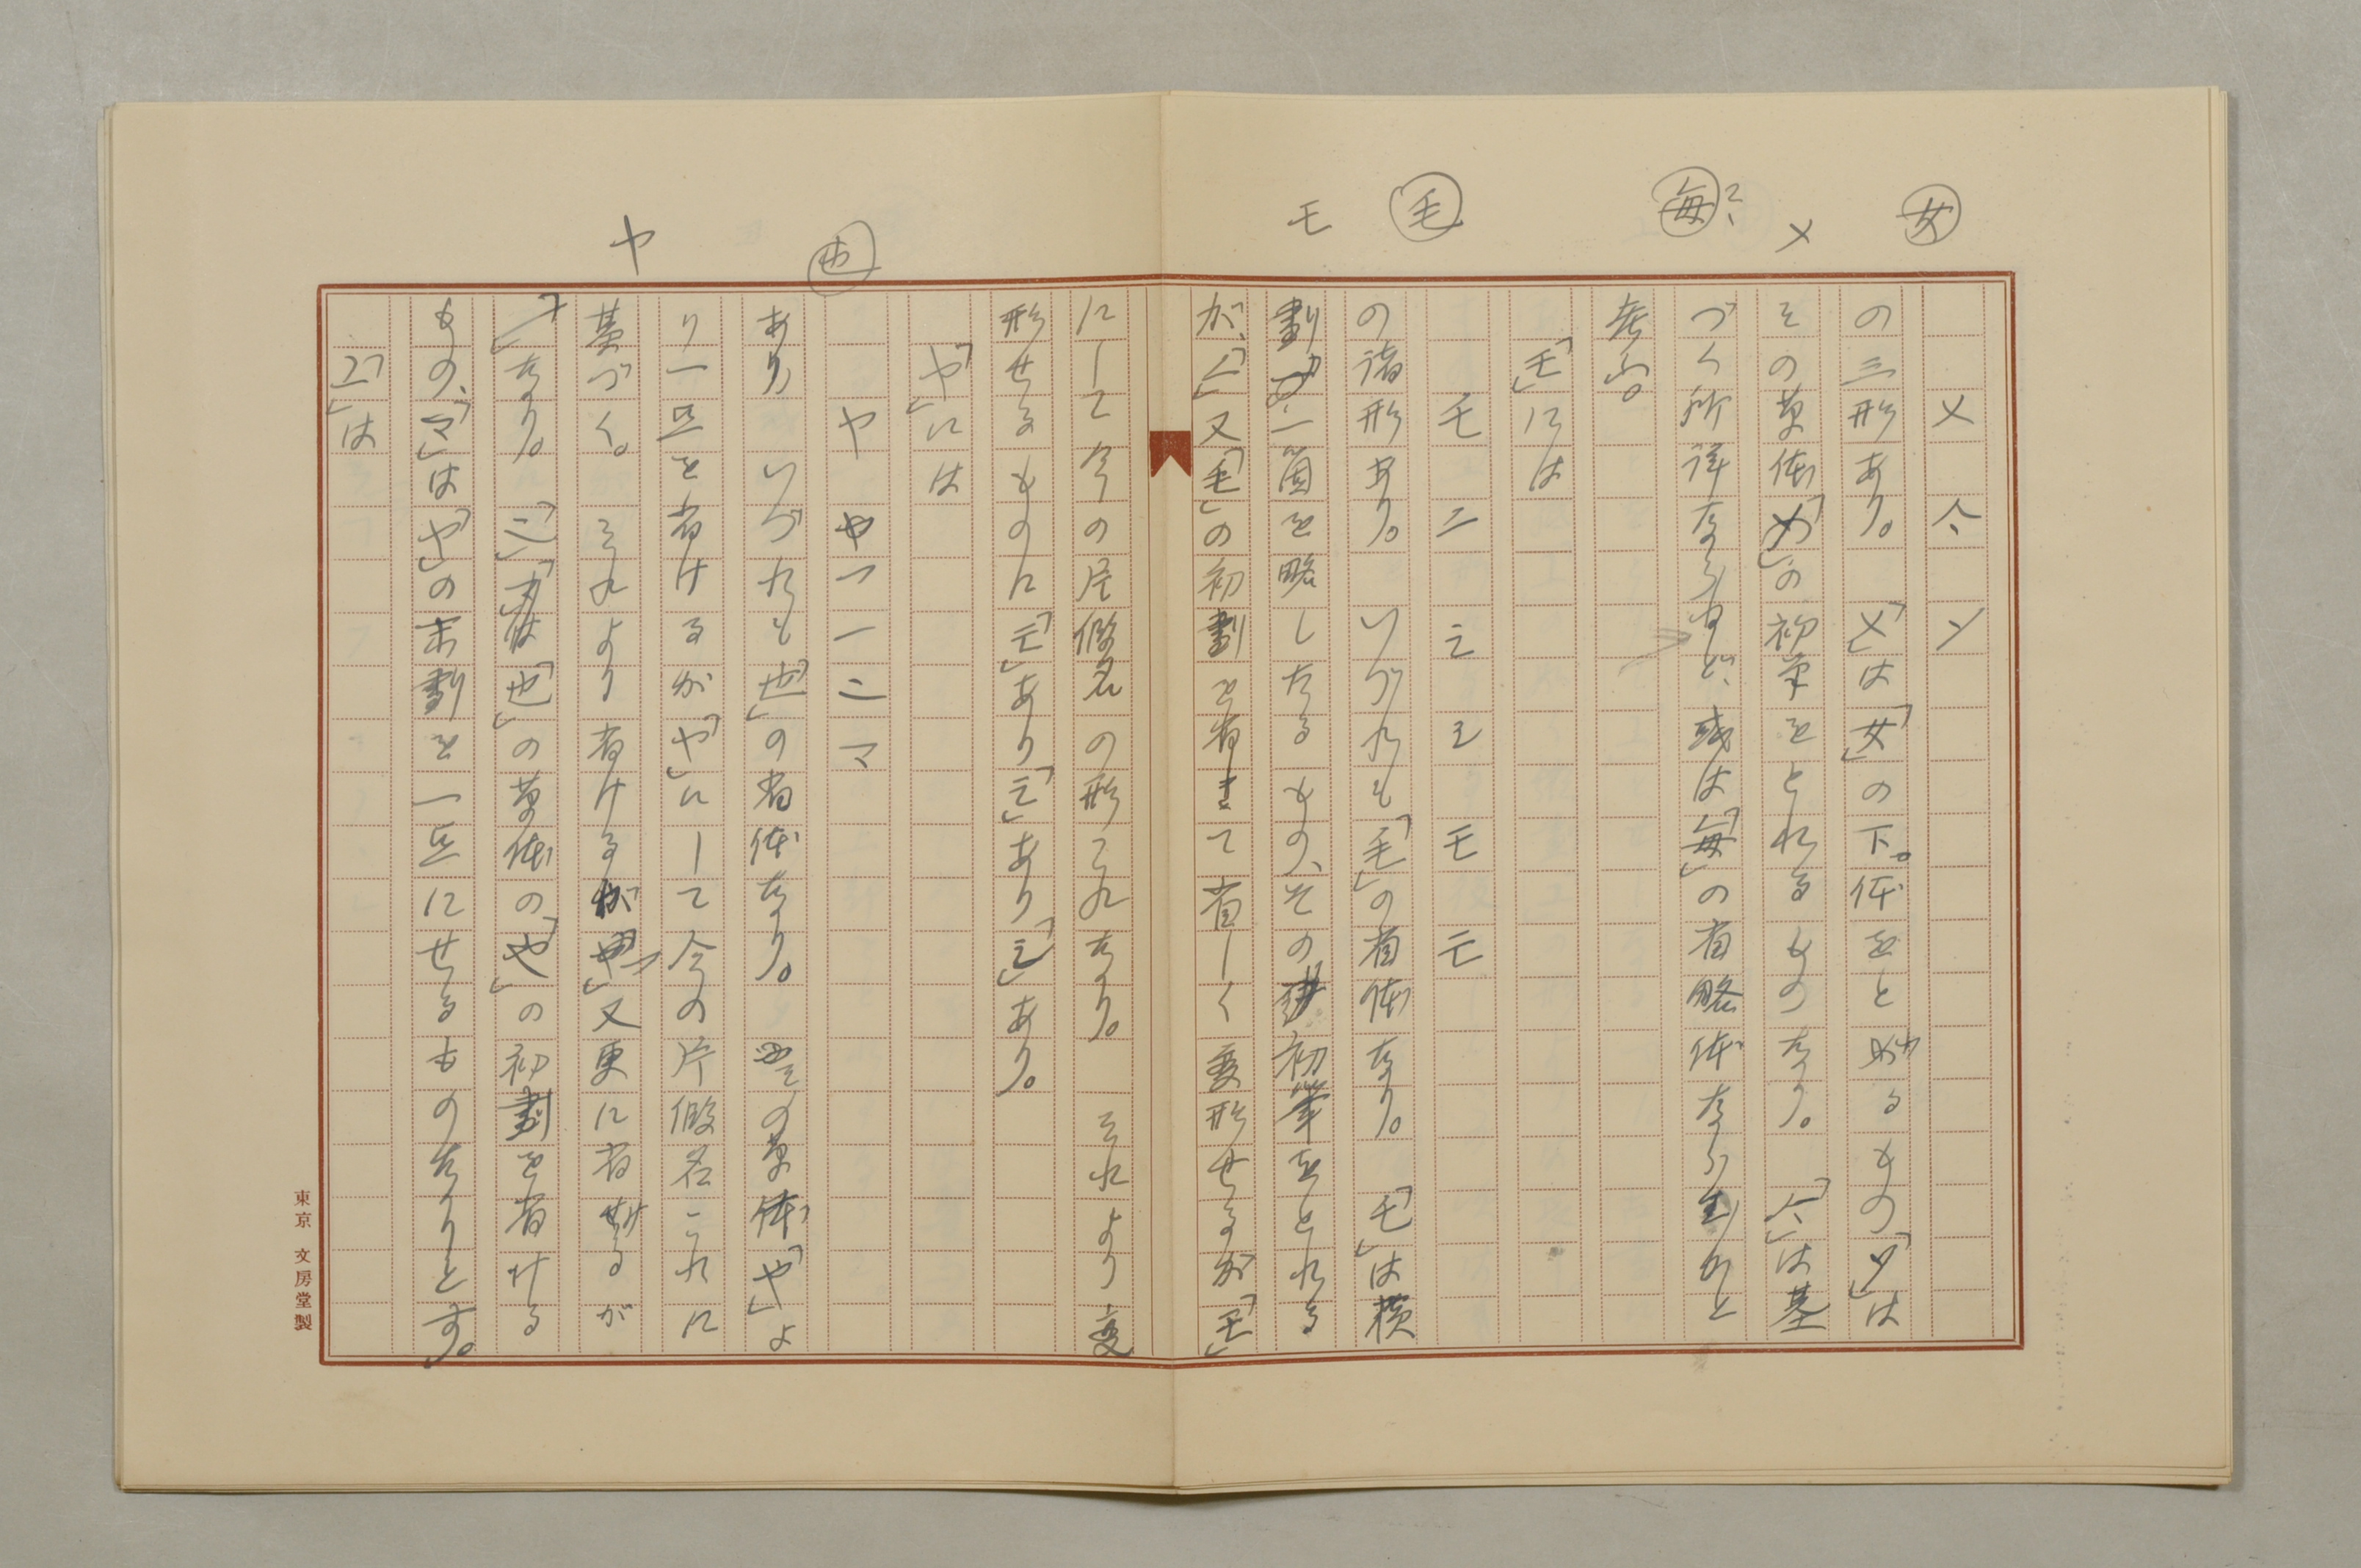 女
メ
毎?
毛
モ
也
ヤ
メ 𠆢 ソ
の三形あり。「メ」は「女」の下体をと れるもの「ソ」は
その草体「め」の初筆をとれるものなり。 「𠆢」は基
づく所詳ならねど、或は「毎」の省略体ならむかと
考ふ。
「モ」には
モ ニ 𠄞 モ モ
の諸形あり。 いづれも「毛」の省体なり。 「モ」は横
劃一箇を略したるもの、その初筆をとれる
が、「」又「毛」の初劃を省きて省しく変形せるが「モ」
にして今の片假名の形これなり。 それより変
形せるものに「モ」あり「」あり「」あり。
「や」には
ヤ や フ 一 ニ マ
あり いづれも「也」の省体なり。 その草体「や」よ
り一点を省けるが「ヤ」にして今の片假名これに
基づく。 それより省けるが「」又更に省けるが
「」なり。 「ニ」は「也」の草体の「や」の初劃を省ける
もの、「マ」は「や」の末劃を一点にせるものなりとす。
「ユ」は
東京 文房堂製